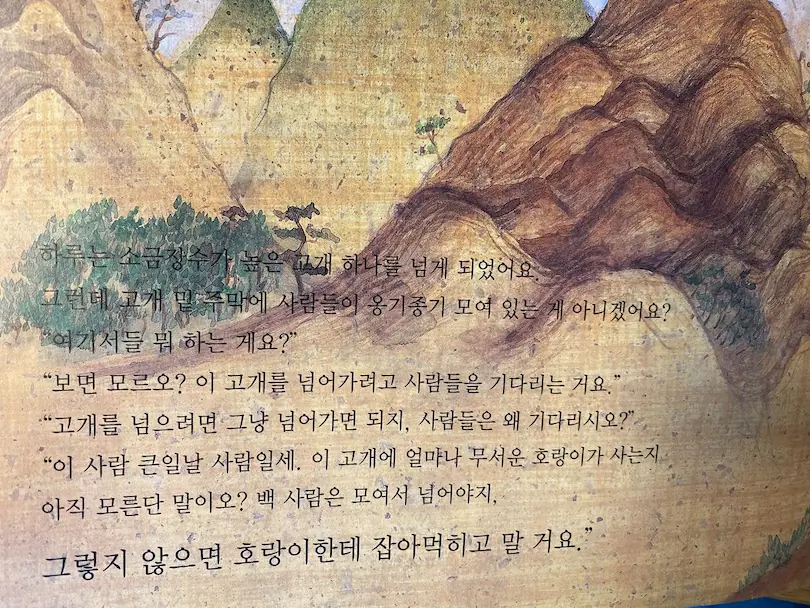 하루는 소금장수가 높은 고개 하나를 넘게 되었어요.
그런데 고개 밑 주막에 사람들이 옹기종기 모여 있는 게 아니겠어요?
“여기서들 뭐 하는 게요?”
“보면 모르오? 이 고개를 넘어가려고 사람들을 기다리는 거요.”
“고개를 넘으려면 그냥 넘어가면 되지, 사람들은 왜 기다리시오?”
“이 사람 큰일날 사람일세. 이 고개에 얼마나 무서운 호랑이가 사는지
아직 모른단 말이오? 백 사람은 모여서 넘어야지,
그렇지 않으면 호랑이한테 잡아먹히고 말 거요.”